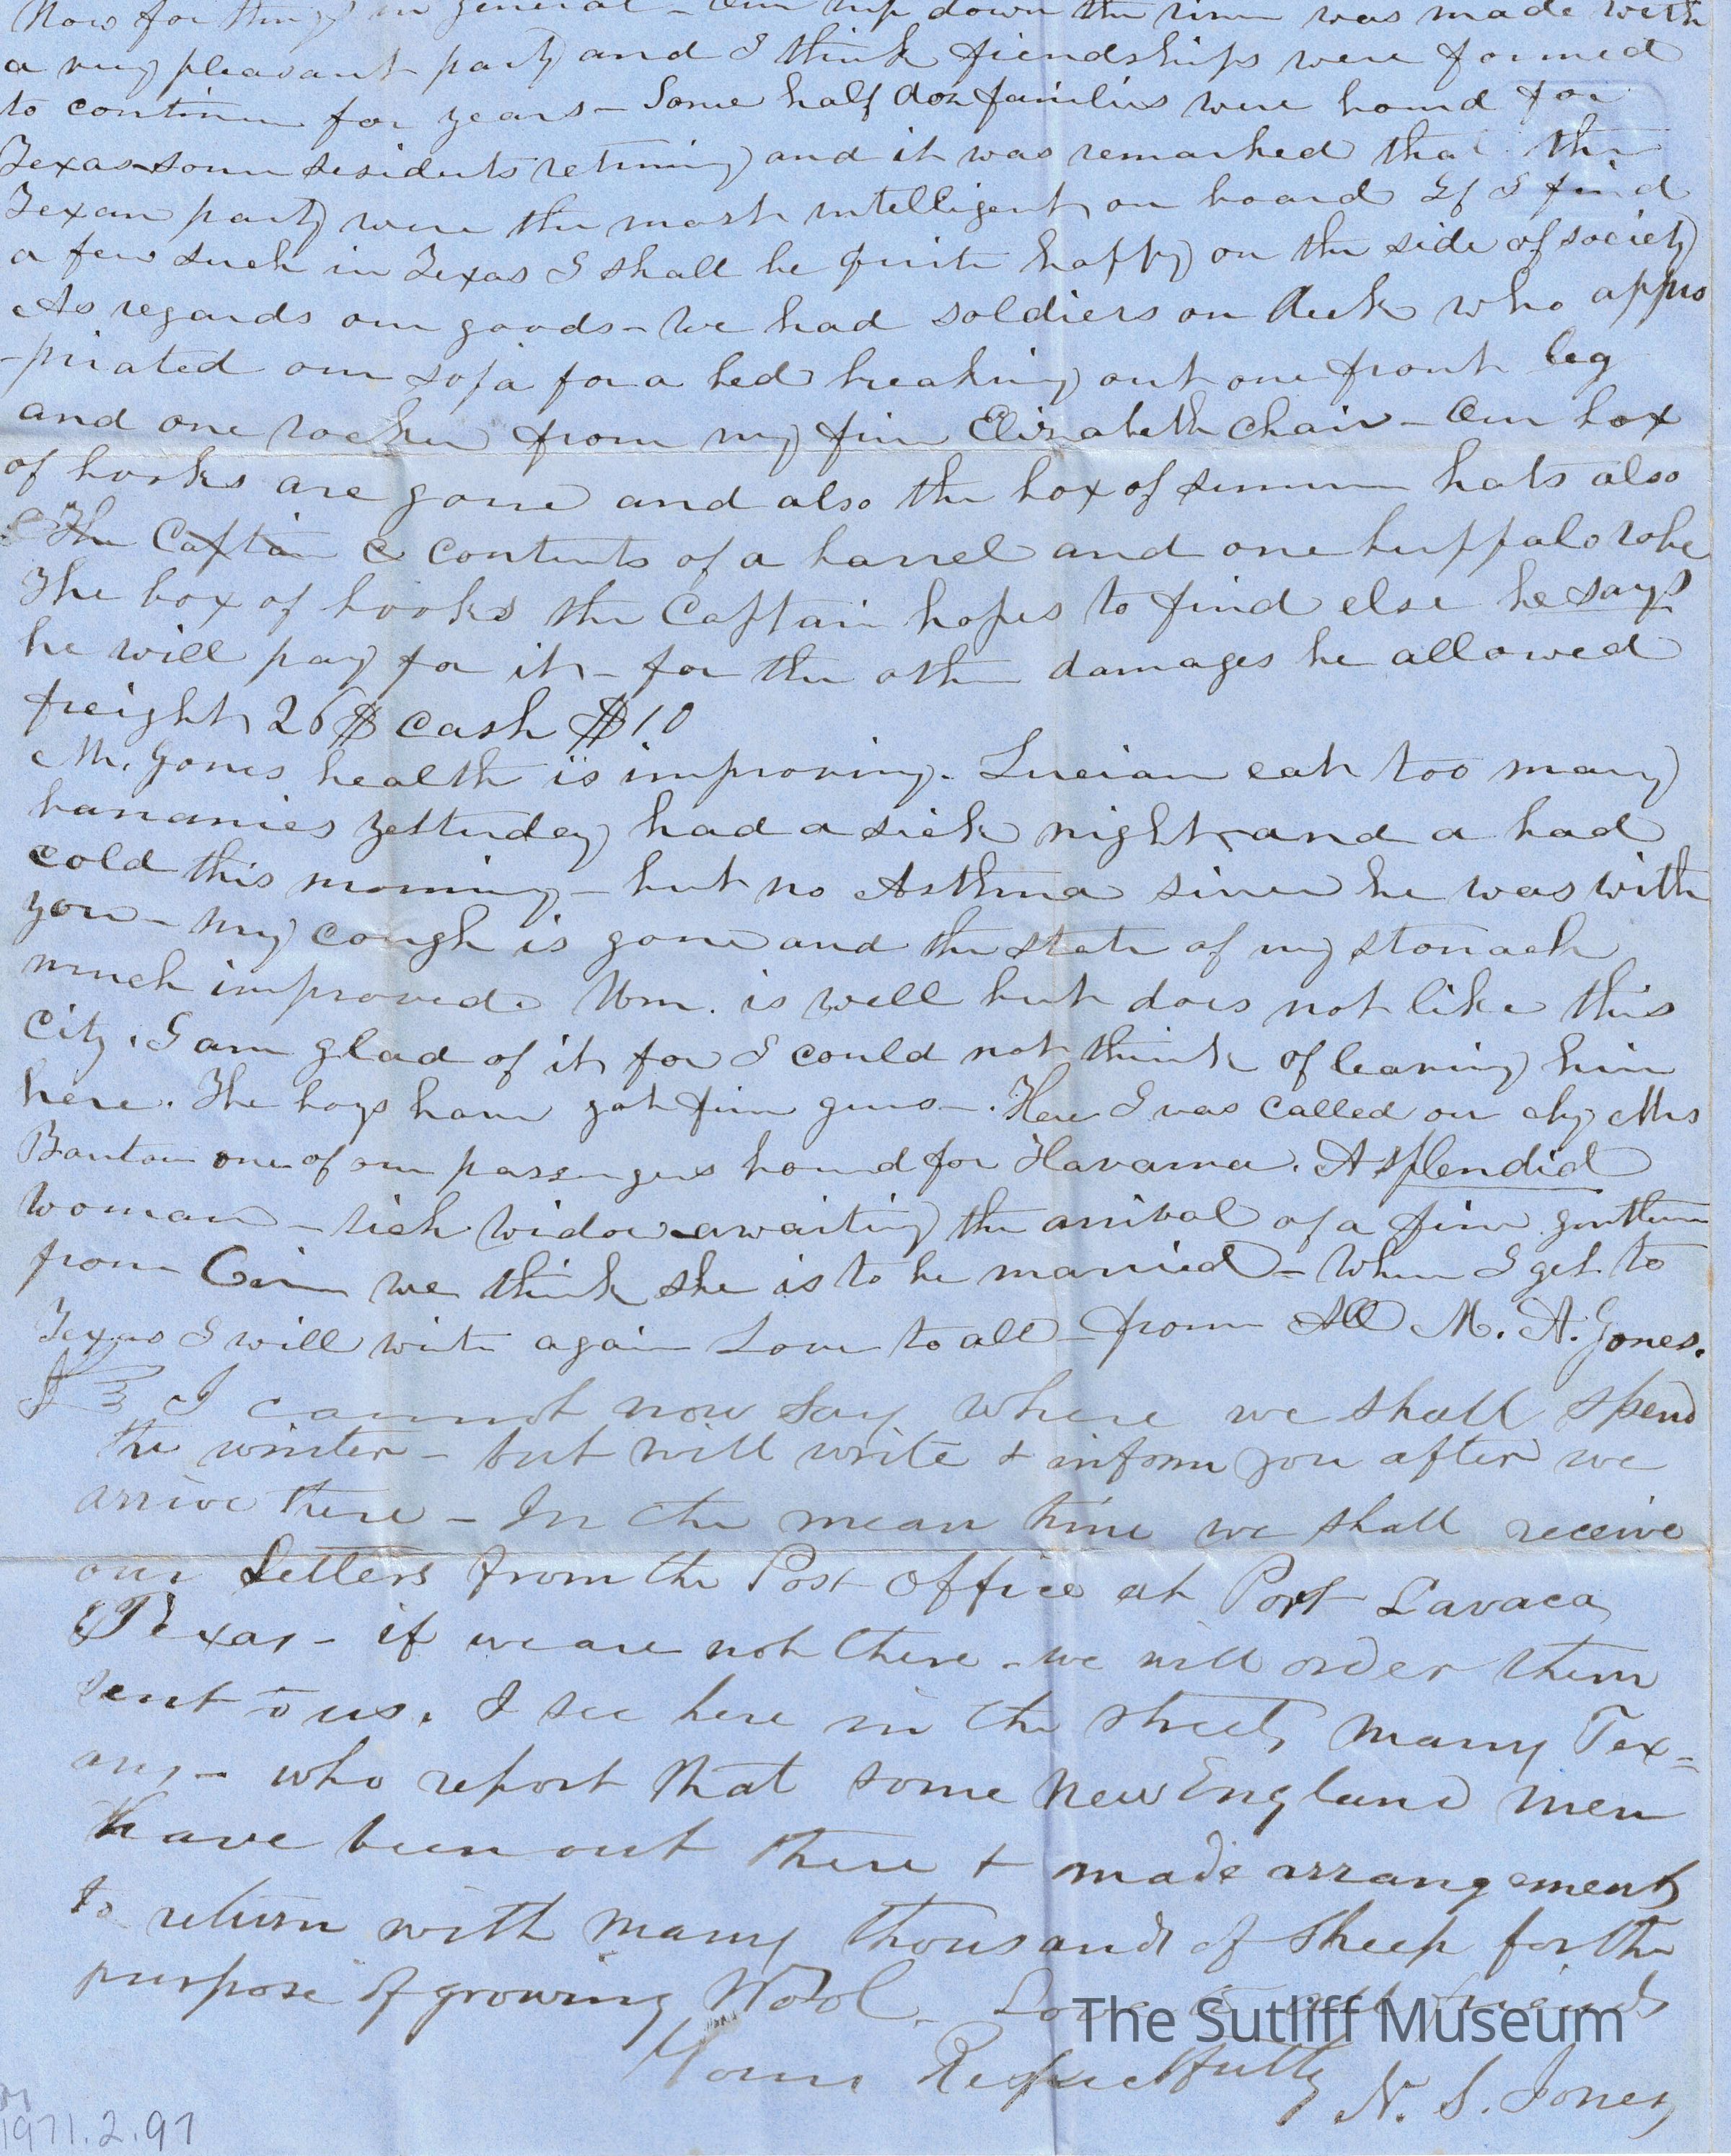 Now for things in general - Our trip down the river was made with
a very pleasant party and I think fiendships were formed
to continue for years - Some half doz families were bound for
Texas some residents returning and it was remarked that the
Texan party were the most intelligent on board If I find
a few such in Texas I shall be quite happy on the side of society
As regards our goods - we had soldiers on deck who appro
-priated our sofa for a bed breaking out one front leg
and one rocker from my fine Elizabeth chair - Our box
of books are gone and also the box of summer hats also
The Captain & contents of a barrel and one buffalo robe
The box of books the Captain hopes to find else he says
he will pay for it - for the other damages he allowed
freight 26$ cash $10
Mr. Jones health is improving. Lucian eat too many
bananies yesterday had a sick night and a bad
cold this morning - but no Asthma since he was with
you - my cough is gone and the state of my stomach
much improved. Wm. is well but does not like this
City. I am glad of it for I could not think of leaving him
here. The boys have got fine guns -. Here I was called on by Mrs
Banton one of our passengers bound for Havanna. A splendid
woman - rich widow awaiting the arrival of a fine gentleman
from Cin we think she is to be married - When I get to
Texas I will write again Love to all - from All M. A. Jones.
I cannot now say where we shall spend
the winter - but will write + inform you after we
arrive there - In the mean time we shall receive
our Letters from the Post Office at Port Lavaca
Texas - if we are not there - we will order them
sent to us. I see here in the streets many Tex=
ans - who report that some New England men
have been out there + made arrangements
to return with many thousands of Sheep for the
purpose of growing Wool. Love to all friends
Yours Respectfully N. S. Jones
The Sutliff Museum
1971.2.97